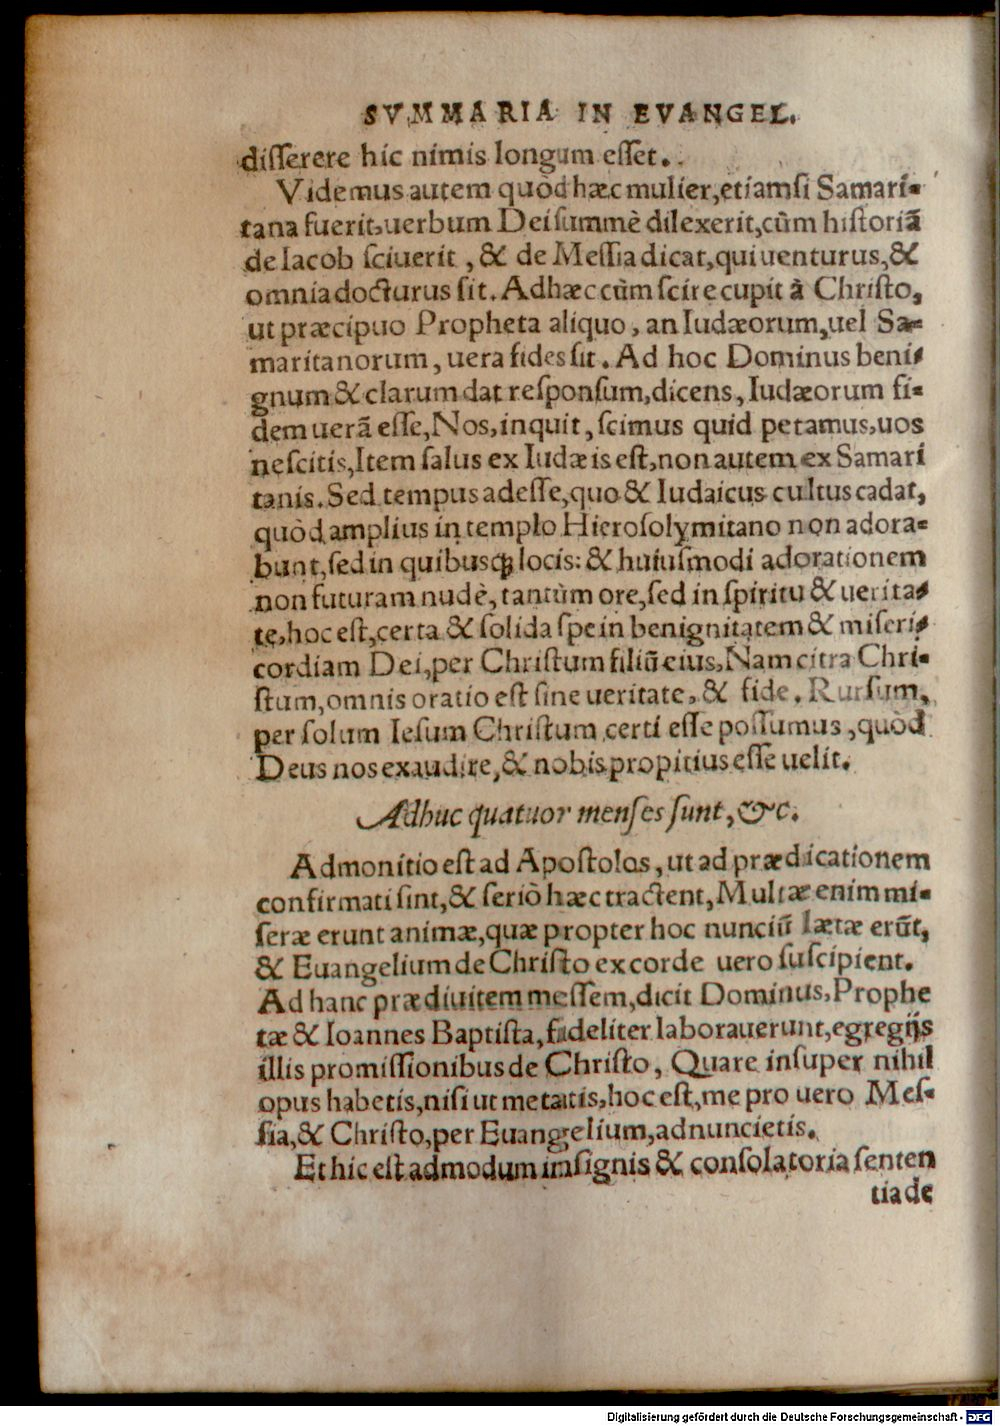 SVMMARIA IN EVANGEL.
disserere hic nimis longum esset.
Videmus autem quòd hæc mulier, etiamsi Samari-
tana fuerit, uerbum Dei summè dilexerit, cùm historiã
de Iacob sciuerit, & de Messia dicat, qui uenturus, &
omnia docturus sit. Adhæc cùm scire cupit à Christo,
ut præcipuo Propheta aliquo, an Iudæorum, uel Sa-
maritanorum, uera fides sit. Ad hoc Dominus beni-
gnum & clarum dat responsum, dicens, Iudæorum fi-
dem uerã esse, Nos, inquit, scimus quid petamus, uos
nescitis, Item salus ex Iudæis est, non autem ex Samari
tanis. Sed tempus adesse, quo & Iudaicus cultus cadat,
quòd amplius in templo Hierosolymitano non adora-
bunt, sed in quibusqꝫ locis: & huiusmodi adorationem
non futuram nudè, tantùm ore, sed in spiritu & uerita-
te, hoc est, certa & solida spe in benignitatem & miseri-
cordiam Dei, per Christum filiũ eius, Nam citra Chri-
stum, omnis oratio est sine ueritate, & fide. Rursum,
per solum Iesum Christum certi esse possumus, quòd
Deus nos exaudire, & nobis propitius esse uelit.
Adhuc quatuor menses sunt, &c.
Admonitio est ad Apostolos, ut ad prædicationem
confirmati sint, & seriò hæc tractent, Multæ enim mi-
seræ erunt animæ, quæ propter hoc nunciũ lætæ erũt,
& Euangelium de Christo ex corde uero suscipient.
Ad hanc prædiuitem messem, dicit Dominus, Prophe
tæ & Ioannes Baptista, fideliter laborauerunt, egregijs
illis promissionibus de Christo, Quare insuper nihil
opus habetis, nisi ut metatis, hoc est, me pro uero Mes-
sia, & Christo, per Euangelium, adnuncietis.
Et hic est admodum insignis & consolatoria senten
tia de
Digitalisierung gefördert durch die Deutsche Forschungsgemeinschaft - DFG